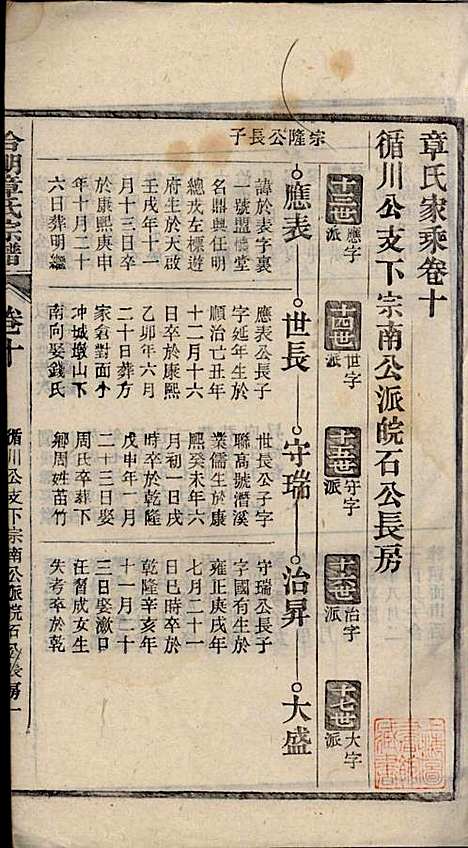 章氏家乘卷十
循川公支下宗南公派皖石公長房
十三世應字派
十四世世字派
十五世守字派
十六世治字派
十七世大字派
宗隆公長子
應表
世長
守瑞
治昇
大盛
諱於表字裏
一號盟懷堂
名鼎興任明
總戎左標遊
府生於天啟
壬戌年十一
月十三日卒
於康熙庚申
年十月二十
六日葬明繼
應表公長子
字延年生於
順治己丑年
十二月十六
日卒於康熙
乙卯年六月
二十日葬方
家倉對面小
冲城墩山下
南向娶錢氏
世長公子字
聯萬號潛溪
業儒生於康
熙癸未年六
月初一日戌
時卒於乾隆
戊申年一月
二十三日娶
周氏卒葬下
鄉周姓苗竹
守瑞公長子
字國有生於
雍正庚戌年
七月二十一
日巳時卒於
乾隆辛亥年
十一月二十
三日娶漵口
任習成女生
失考卒於乾
章氏宗譜
卷十
循川公支下宗南公派皖石公長房一